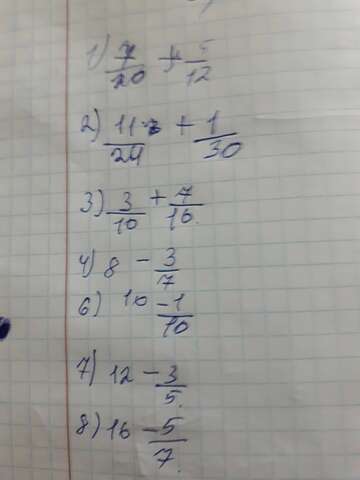 1) 7/20 + 5/12
2) 11/24 + 1/30
3) 3/10 + 7/16
4) 8 - 3/7
6) 10 - 1/10
7) 12 - 3/5
8) 16 - 5/7